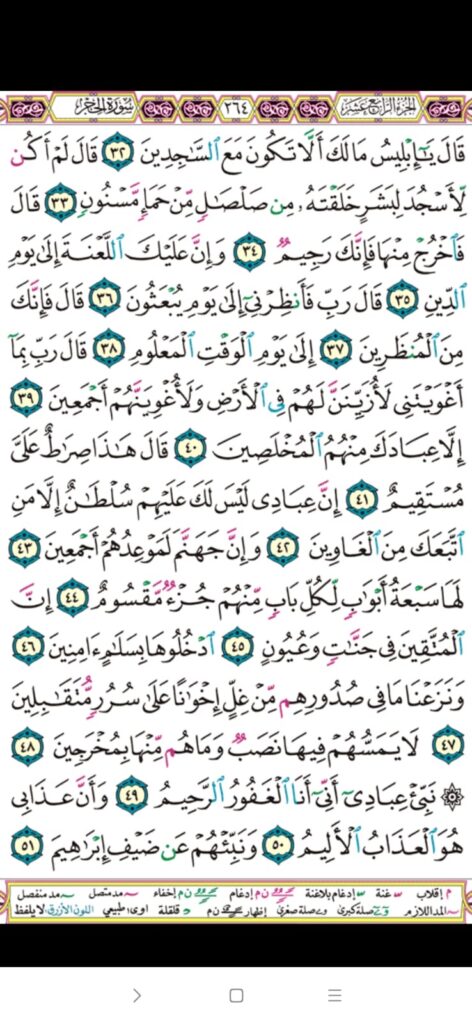 الجزء الرابع عشر ٢٦٤ سورة الحجر
قَالَ يَـٰٓإِبۡلِيسُ مَالَكَ أَلَّا تَكُونَ مَعَ ٱلسَّـٰجِدِينَ ٣٢ قَالَ لَمۡ أَكُن
لِّأَسۡجُدَ لِبَشَرٍ خَلَقۡتَهُۥ مِن صَلۡصَـٰلٍ مِّنۡ حَمَإٍ مَّسۡنُونٍ ٣٣ قَالَ
فَٱخۡرُجۡ مِنۡهَا فَإِنَّكَ رَجِيمٌ ٣٤ وَإِنَّ عَلَيۡكَ ٱللَّعۡنَةَ إِلَىٰ يَوۡمِ
ٱلدِّينِ ٣٥ قَالَ رَبِّ فَأَنظِرۡنِىٓ إِلَىٰ يَوۡمِ يُبۡعَثُونَ ٣٦ قَالَ فَإِنَّكَ
مِنَ ٱلۡمُنظَرِينَ ٣٧ إِلَىٰ يَوۡمِ ٱلۡوَقۡتِ ٱلۡمَعۡلُومِ ٣٨ قَالَ رَبِّ بِمَآ
أَغۡوَيۡتَنِى لَأُزَيِّنَنَّ لَهُمۡ فِى ٱلۡأَرۡضِ وَلَأُغۡوِيَنَّهُمۡ أَجۡمَعِينَ ٣٩
إِلَّا عِبَادَكَ مِنۡهُمُ ٱلۡمُخۡلَصِينَ ٤٠ قَالَ هَـٰذَا صِرَٰطٌ عَلَىَّ
مُسۡتَقِيمٌ ٤١ إِنَّ عِبَادِى لَيۡسَ لَكَ عَلَيۡهِمۡ سُلۡطَـٰنٌ إِلَّا مَنِ
ٱتَّبَعَكَ مِنَ ٱلۡغَاوِينَ ٤٢ وَإِنَّ جَهَنَّمَ لَمَوۡعِدُهُمۡ أَجۡمَعِينَ ٤٣
لَهَا سَبۡعَةُ أَبۡوَٰبٍ لِّكُلِّ بَابٍ مِّنۡهُمۡ جُزۡءٌ مَّقۡسُومٌ ٤٤ إِنَّ
ٱلۡمُتَّقِينَ فِى جَنَّـٰتٍ وَعُيُونٍ ٤٥ ٱدۡخُلُوهَا بِسَلَـٰمٍ ءَامِنِينَ ٤٦
وَنَزَعۡنَا مَا فِى صُدُورِهِم مِّنۡ غِلٍّ إِخۡوَٰنًا عَلَىٰ سُرُرٍ مُّتَقَـٰبِلِينَ
٤٧ لَا يَمَسُّهُمۡ فِيهَا نَصَبٌ وَمَا هُم مِّنۡهَا بِمُخۡرَجِينَ ٤٨
۞ نَبِّئۡ عِبَادِىٓ أَنِّىٓ أَنَا ٱلۡغَفُورُ ٱلرَّحِيمُ ٤٩ وَأَنَّ عَذَابِى
هُوَ ٱلۡعَذَابُ ٱلۡأَلِيمُ ٥٠ وَنَبِّئۡهُمۡ عَن ضَيۡفِ إِبۡرَٰهِيمَ ٥١
م إقلاب غنة إدغام بلاغنة ن م إدغام ن م إخفاء مد متصل مد منفصل
المد اللازم صلة كبرى صلة صغرى إظهار ن م قلقلة اوى: طبيعي اللون الأزرق: لا يلفظ